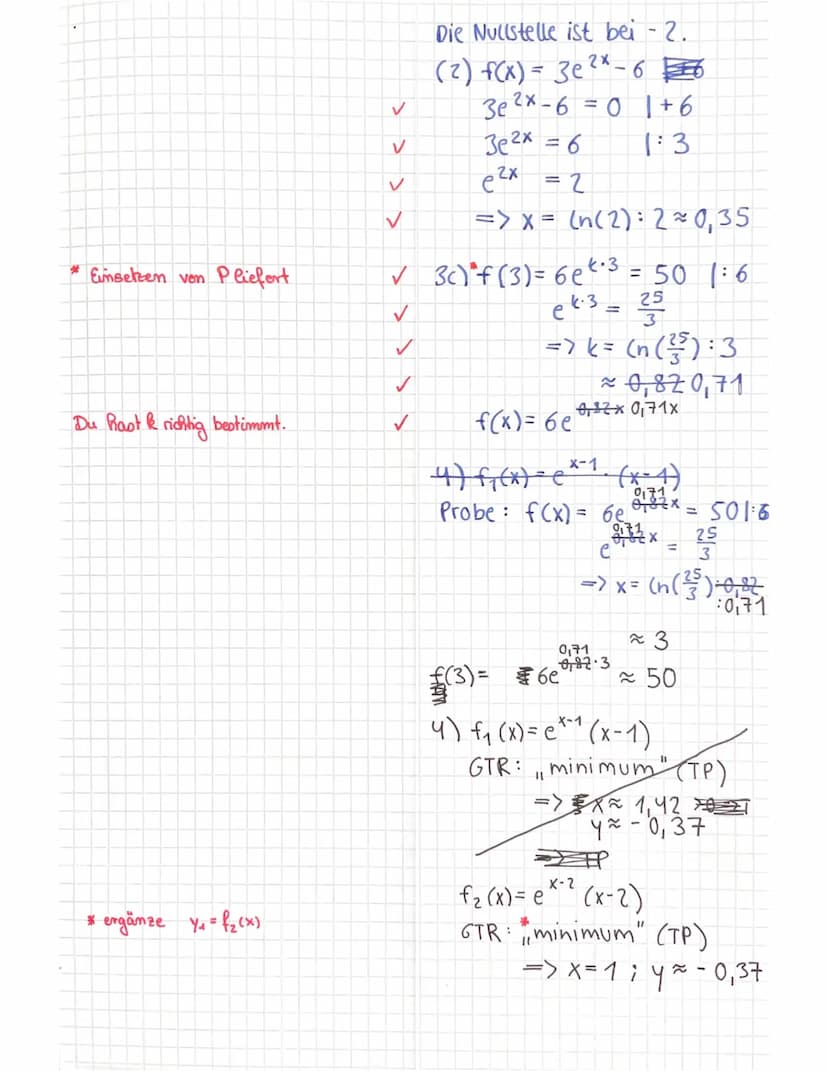 Die Nullstelle ist bei -2.
(2) f(x) = 3e^2x - 6
✓ 3e^2x - 6 = 0 | + 6
✓ 3e^2x = 6 | : 3
✓ e^2x = 2
✓ => x = ln(2) : 2 ≈ 0,35
* Einsetzen von P liefert ✓ 3c)* f(3) = 6e^k·3 = 50 | : 6
✓ e^k·3 = 25/3
✓ => k = ln(25/3) : 3
✓ ≈ 0,82 0,71
Du hast k richtig bestimmt. ✓ f(x) = 6e^0,82x 0,71x
4) f₁(x) = e^x-1 · (x-1)
Probe: f(x) = 6e^0,82 0,71 x = 50 | : 6
e^0,82 0,71 x = 25/3
=> x = ln(25/3) : 0,82
: 0,71
≈ 3
f(3) = 6e^0,82 0,71 · 3 ≈ 50
4) f₁(x) = e^x-1 (x-1)
GTR: „minimum" (TP)
=> x ≈ 1,42
y ≈ - 0,37
=> TP
f₂(x) = e^x-2 (x-2)
* ergänze y₁ = f₂(x) GTR: *„minimum" (TP)
=> x = 1 ; y ≈ - 0,37